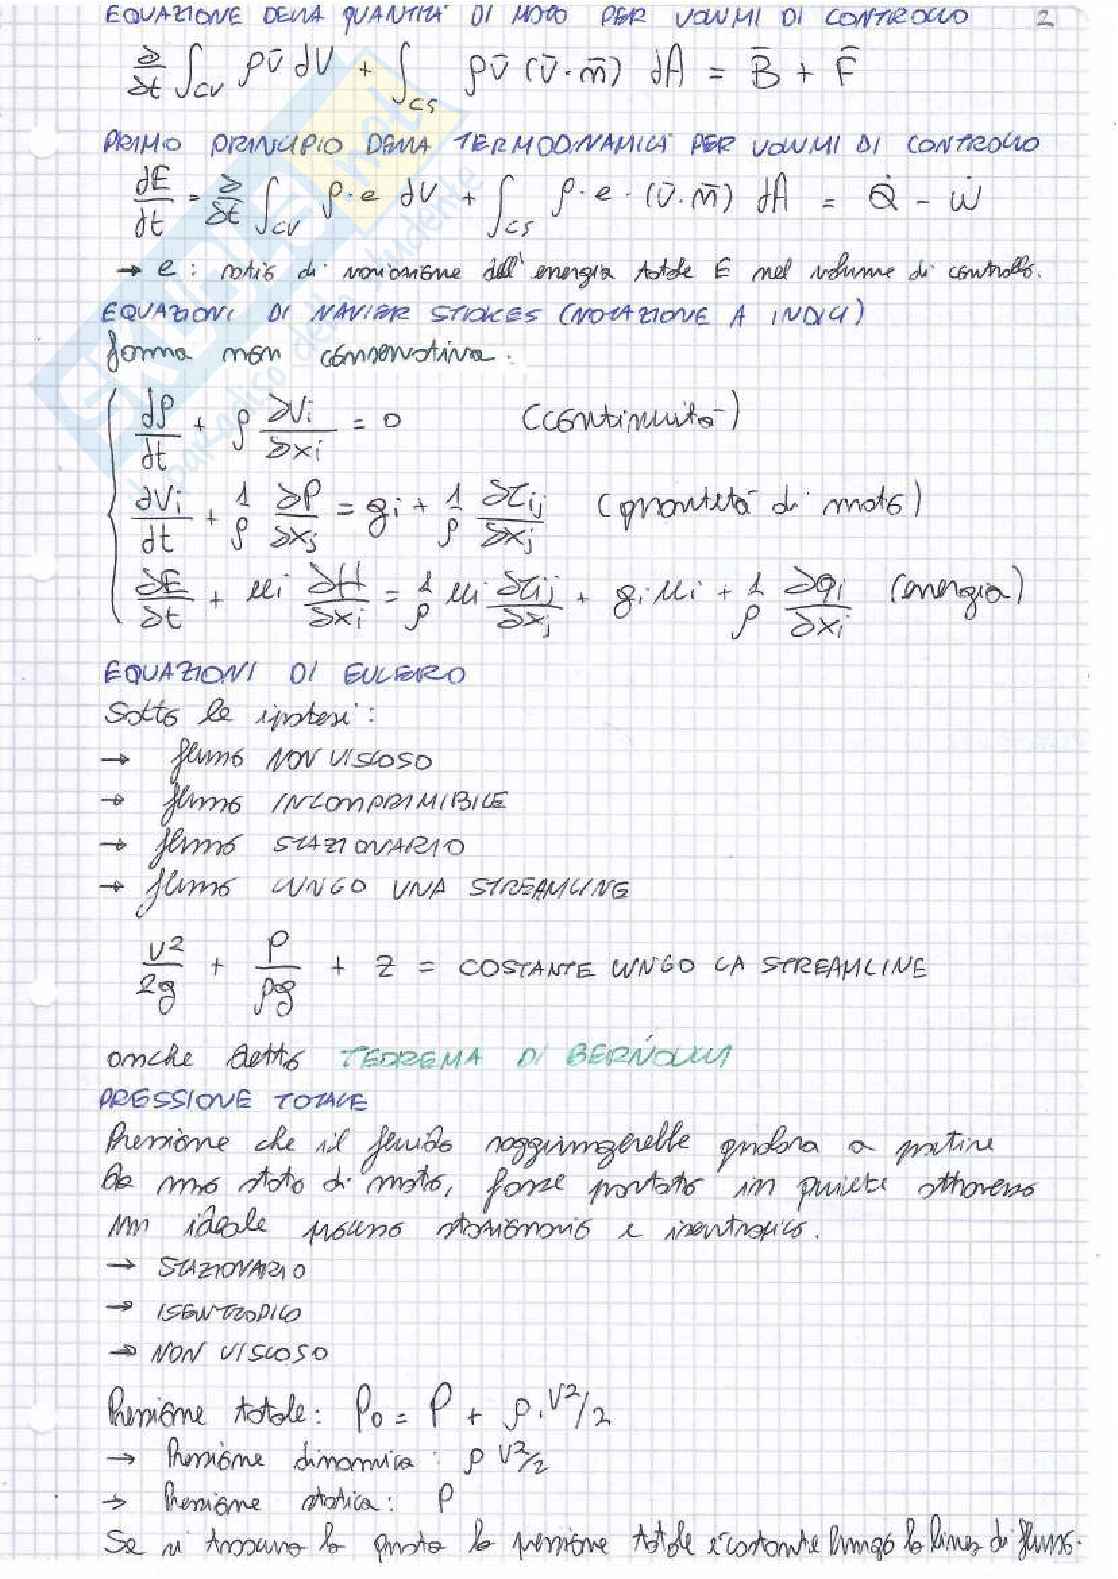 EQUAZIONE DELLA QUANTITA' DI MOTO PER VOLUMI DI CONTROLLO 2
∂/∂t ∫_CV ρ v̄ dV + ∫_CS ρ v̄ (v̄ · n̄) dA = B̄ + F̄
PRIMO PRINCIPIO DELLA TERMODINAMICA PER VOLUMI DI CONTROLLO
dE/dt = ∂/∂t ∫_CV ρ · e dV + ∫_CS ρ · e · (v̄ · n̄) dA = Q̇ - Ẇ
→ e : ratio di variazione dell' energia totale E nel volume di controllo.
EQUAZIONI DI NAVIER STOKES (NOTAZIONE A INDICI)
forma non conservativa :
dρ/dt + ρ ∂Vi/∂xi = 0 (continuità)
∂Vi/dt + 1/ρ ∂P/∂xj = gi + 1/ρ ∂τij/∂xj (quantità di moto)
∂E/∂t + ui ∂H/∂xi = 1/ρ ui ∂τij/∂xj + gi ui + 1/ρ ∂qi/∂xi (energia)
EQUAZIONI DI EULERO
Sotto le ipotesi :
→ flusso NON VISCOSO
→ flusso INCOMPRIMIBILE
→ flusso STAZIONARIO
→ flusso LUNGO UNA STREAMLINE
V²/2g + P/ρg + Z = COSTANTE LUNGO LA STREAMLINE
anche detto TEOREMA DI BERNOULLI
PRESSIONE TOTALE
Pressione che il fluido raggiungerebbe qualora a partire
da uno stato di moto, fosse portato in quiete attraverso
un ideale processo stazionario e isentropico.
→ STAZIONARIO
→ ISENTROPICO
→ NON VISCOSO
Pressione totale : P₀ = P + ρ · V²/2
→ Pressione dinamica : ρ V²/2
→ Pressione statica : P
Se si trascura la quota la pressione totale è costante lungo la linea di flusso.